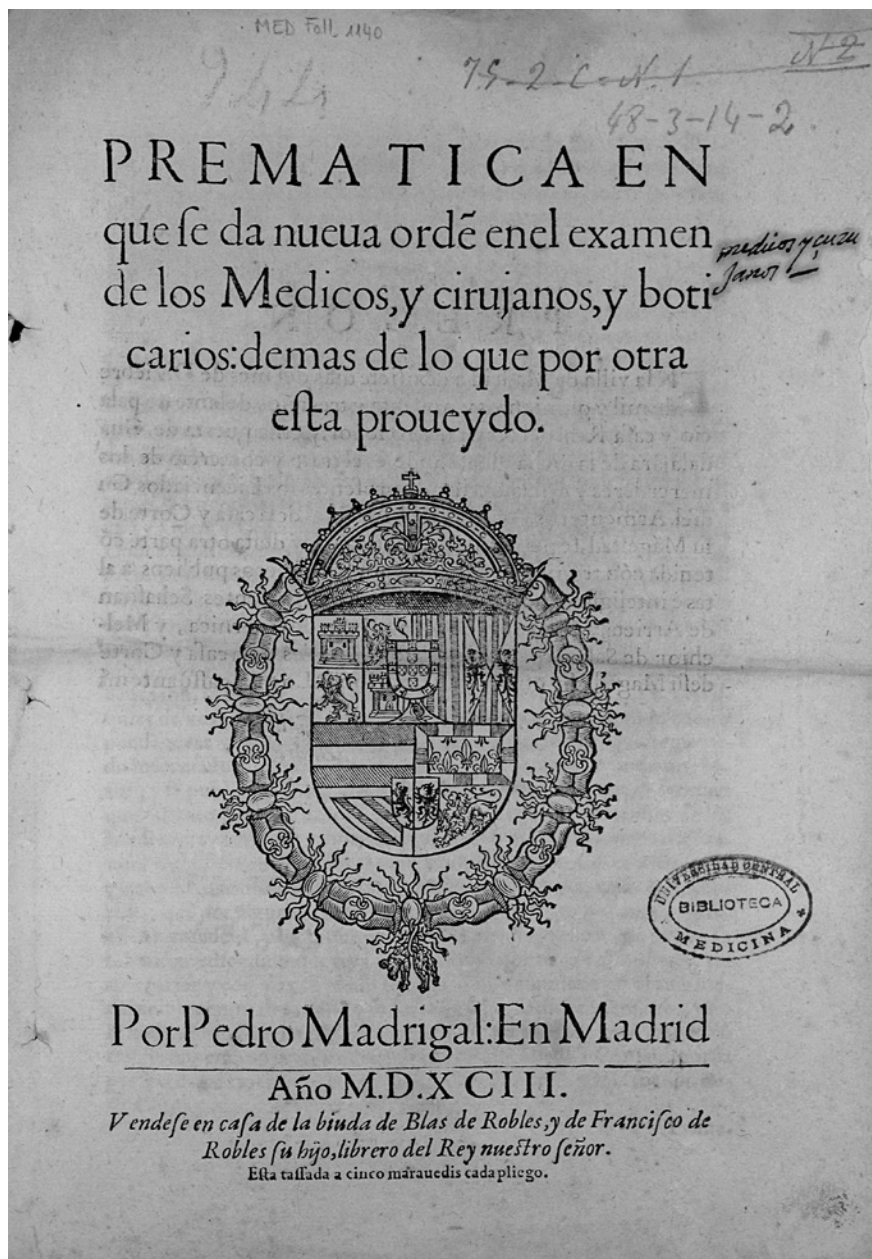 MED Foll. 1140
N 2
75-2-C-N.1
48-3-14-2.
PREMATICA EN
que ſe da nueua ordē enel examen
de los Medicos,y cirujanos,y boti
carios:demas de lo que por otra
eſta proueydo.
medicos y ciru
janos
UNIVERSIDAD CENTRAL
BIBLIOTECA
MEDICINA
Por Pedro Madrigal:En Madrid
Año M.D.XCIII.
Vendeſe en caſa de la biuda de Blas de Robles,y de Franciſco de
Robles ſu hijo,librero del Rey nueſtro ſeñor.
Eſta taſſada a cinco marauedis cada pliego.